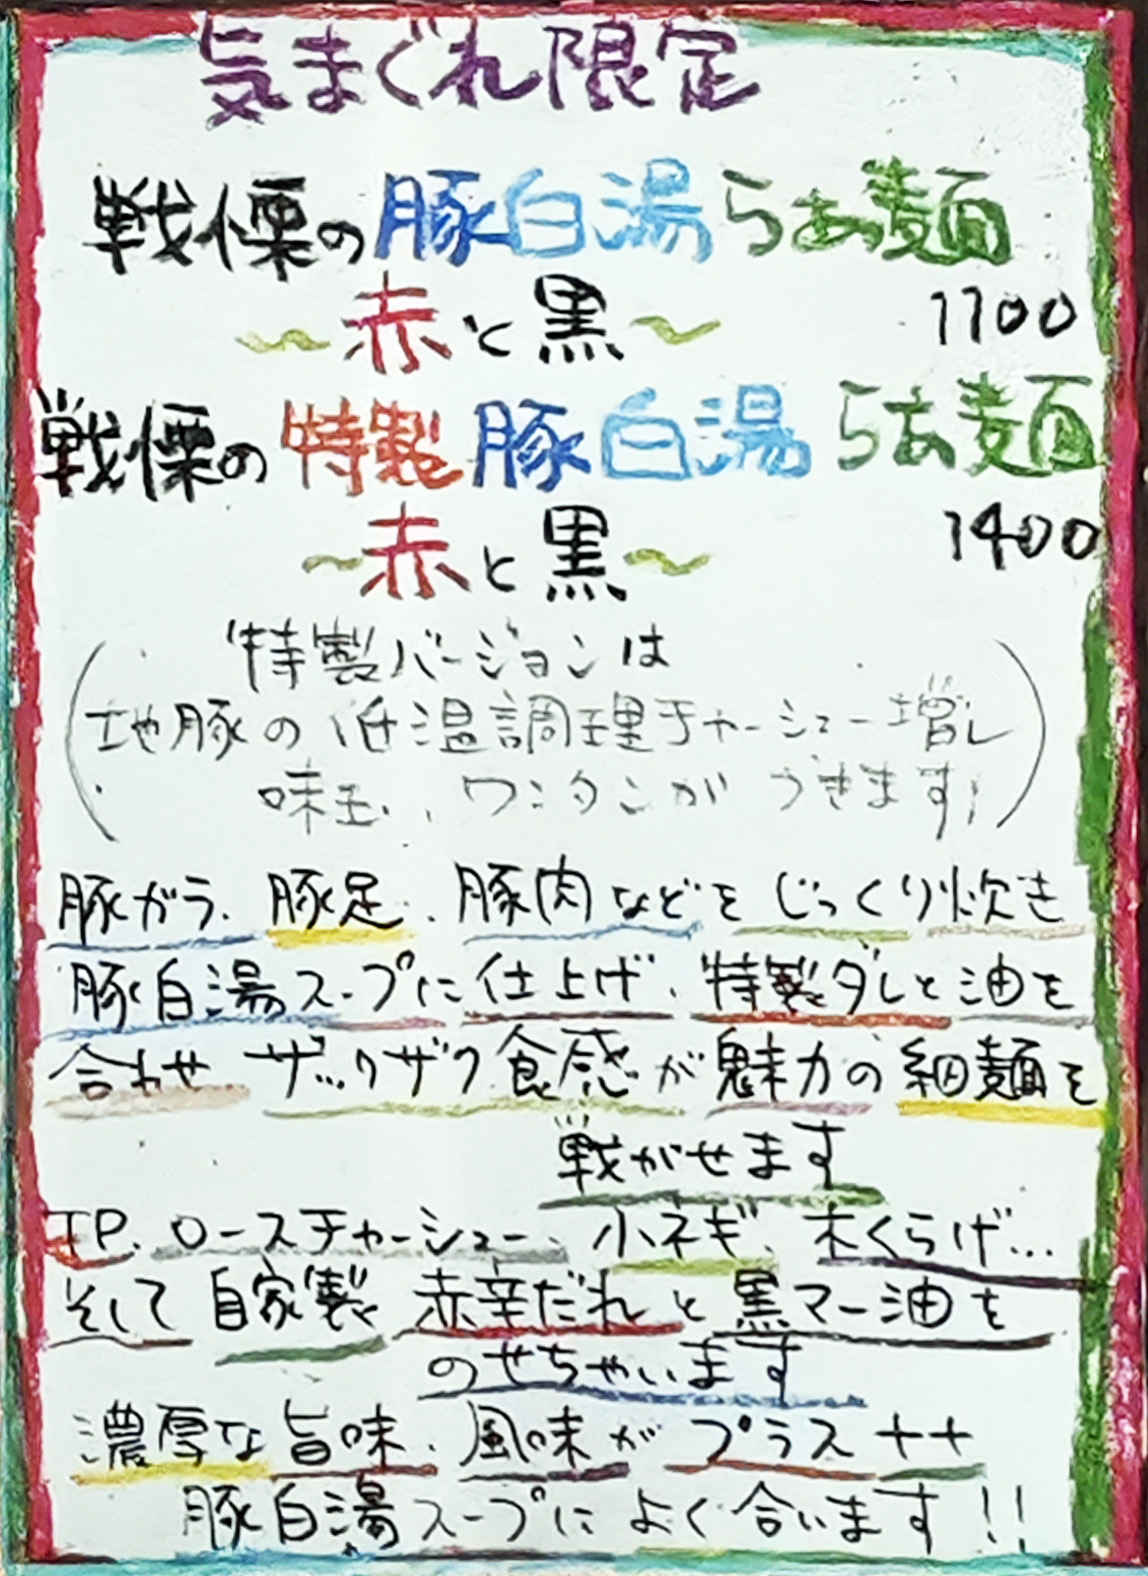 気まぐれ限定
戦慄の豚白湯らぁ麺
〜赤と黒〜 1100
戦慄の特製豚白湯らぁ麺
〜赤と黒〜 1400
(特製バージョンは
地豚の低温調理チャーシュー増し
味玉、ワンタンがつきます!)
豚ガラ、豚足、豚肉などをじっくり炊き
豚白湯スープに仕上げ、特製ダレと油を
合わせ ザックザク食感が魅力の細麺を
戦がせます
TP、ロースチャーシュー、小ネギ、木くらげ…
そして自家製赤辛だれと黒マー油を
のせちゃいます
濃厚な旨味、風味がプラス++
豚白湯スープによく合います!!